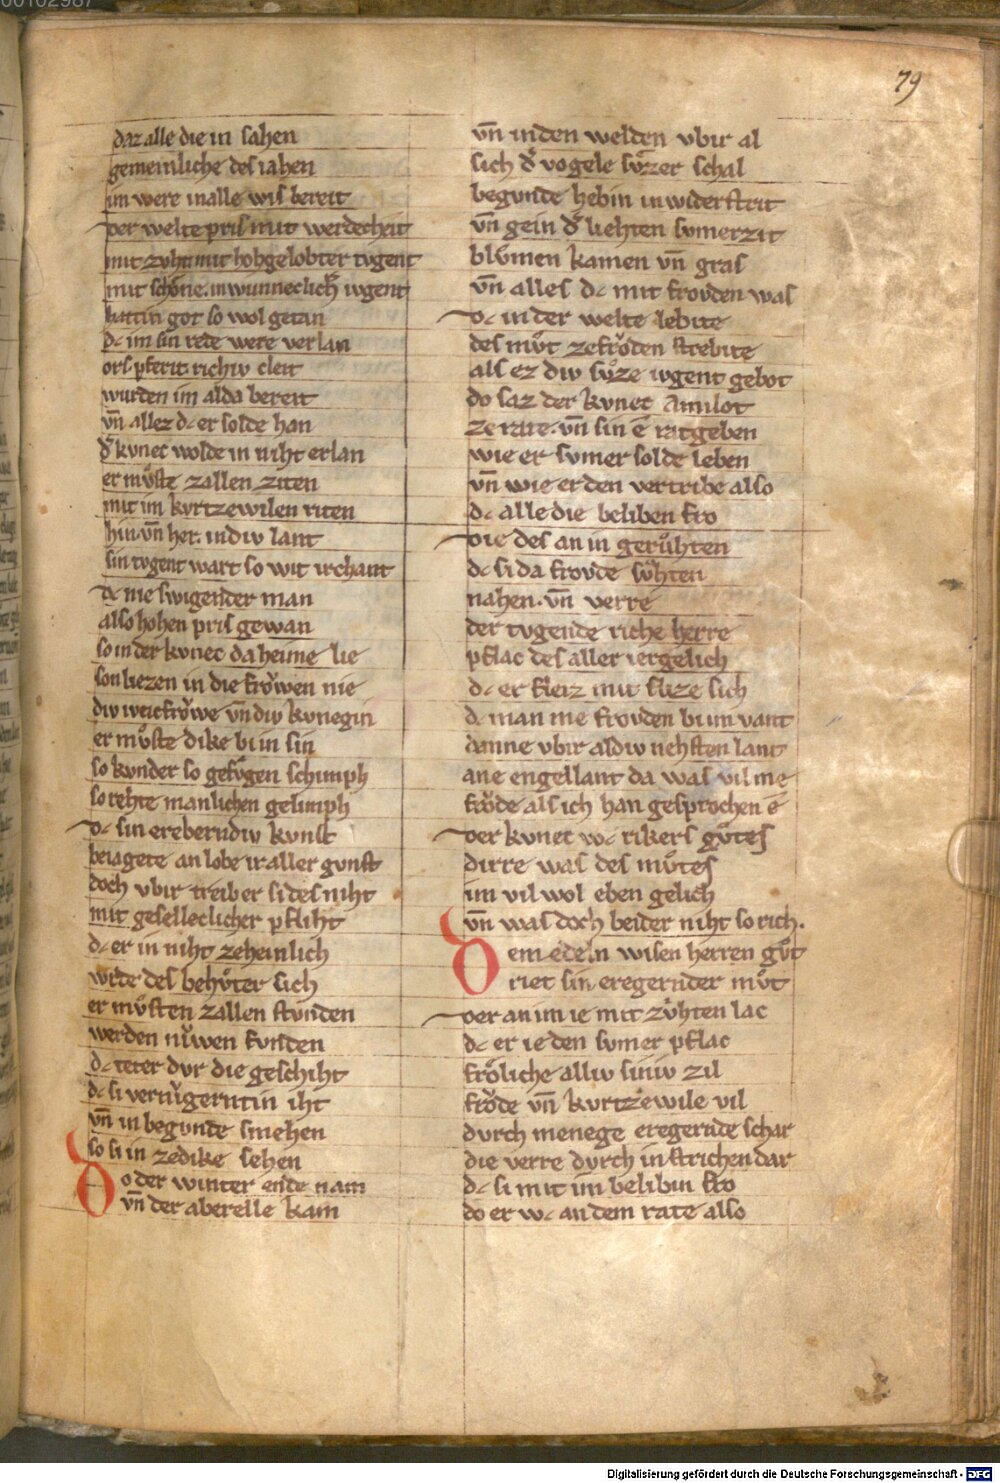 00102987
79
daz alle die in sahen
gemeinliche des iahen
im were in alle wis bereit
der welte pris mit werdecheit
mit zvht mit hohgelobter tvgent
mit schone. in wunneclichr ivgent
hattin got so wol getan
dc im sin rede were verlan
ors pferit richiv cleit
wurden im alda bereit
vn̄ allez dc er solde han
dˀ kvnec wolde in niht erlan
er mvͦste zallen ziten
mit im kvrtzewilen riten
hin. vn̄ her. in div lant
sin tvgent wart so wit irchant
dc nie swigender man
also hohen pris gewan
so in der kvnec da heime lie
son liezen in die frowen nie
div ivncfrowe vn̄ div kvnegin
er mvͦste dike bi in sin
so kvnder so gefvͦgen schimph
so rehte manlichen gelimph
dc sin ereberndiv kvnst
beiagete an lobe ir aller gvnst
doch vbir treib er si des niht
mit geselleclicher pfliht
dc er in niht ze heinlich
wrde des behvͦter sich
er mvͦsten zallen stvnden
werden nvwen fvnden
dc teter dvr die geschiht
dc si vernvgerntin iht
vn̄ in begvnde smehen
so si in ze dike sehen
Do der winter ende nam
vn̄ der aberelle kam
vn̄ in den welden vbir al
sich dˀ vogele svͦzer schal
begvnde hebin in widerstrit
vn̄ gein dˀ liehten svmerzit
blvͦmen kamen vn̄ gras
vn̄ alles dc mit frovden was
dc in der welte lebite
des mvͦt ze froͮden strebite
als ez div svͦze ivgent gebot
do saz der kvnec Amilot
ze rate. vn̄ sin e ratgeben
wie er svmer solde leben
vn̄ wie er den vertribe also
dc alle die beliben fro
die des an in gervͦhten
dc si da frovde svͦhten
nahen. vn̄ verre
der tvgende riche herre
pflac des aller iergelich
dc er fleiz mit flize sich
dc man nie frovden bi im vant
danne vbir al div nehsten lant
ane engellant da was vil me
froͮde als ich han gesprochen e
der kvnec wc rikers gvͦtes
dirre was des mvͦtes
im vil wol eben gelich
vn̄ was doch beider niht so rich.
Dem edeln wisen herren gvͦt
riet sin eregernder mvͦt
der an im ie mit zvͤhten lac
dc er ie den svmer pflac
froͤliche alliv siniv zil
froͮde vn̄ kvrtzewile vil
dvrch menege eregernde schar
die verre dvrch in strichen dar
dc si mit im belibin fro
do er wc an dem rate also
Digitalisierung gefördert durch die Deutsche Forschungsgemeinschaft - DFG